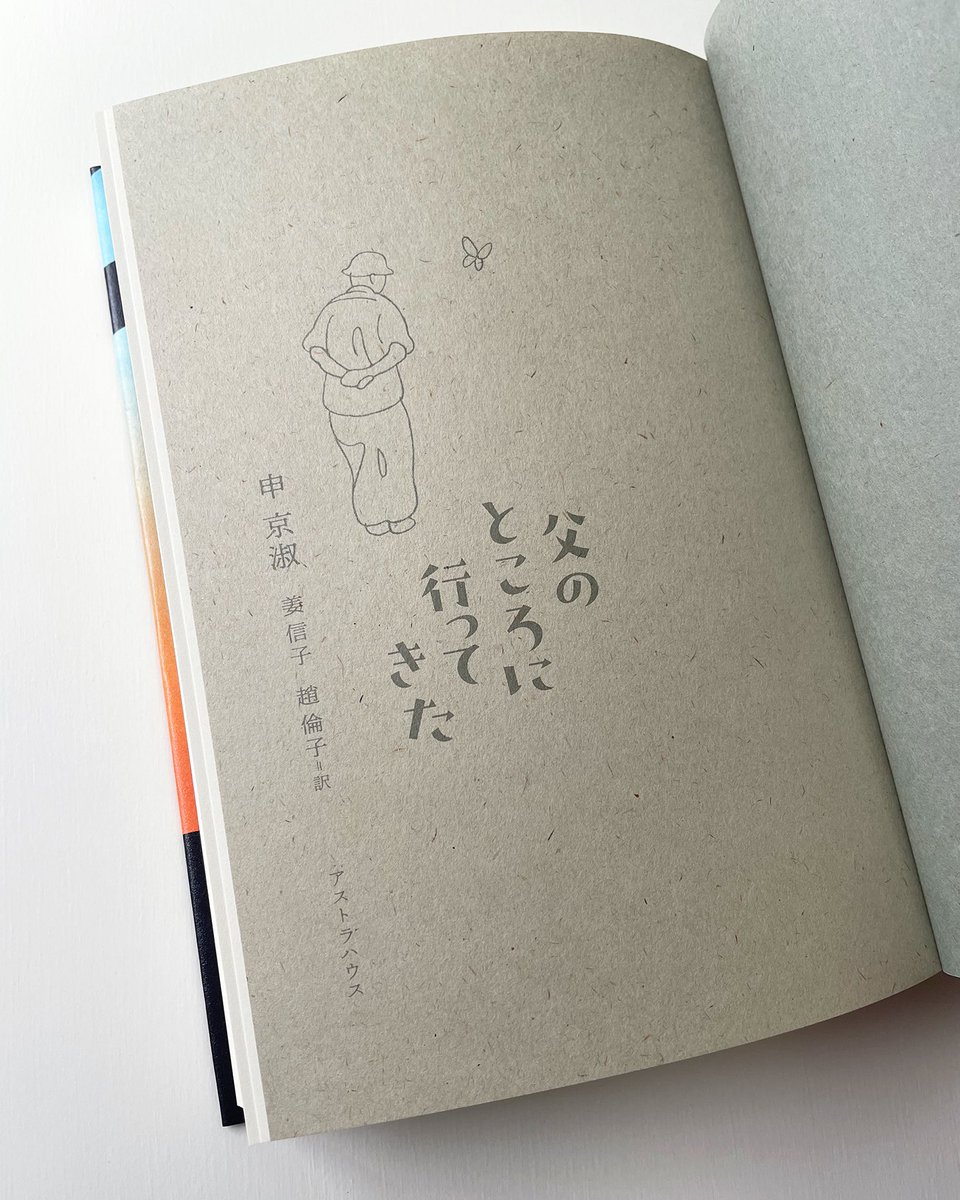 父の
ところに
行って
きた
申京淑
姜信子 趙倫子＝訳
アストラハウス